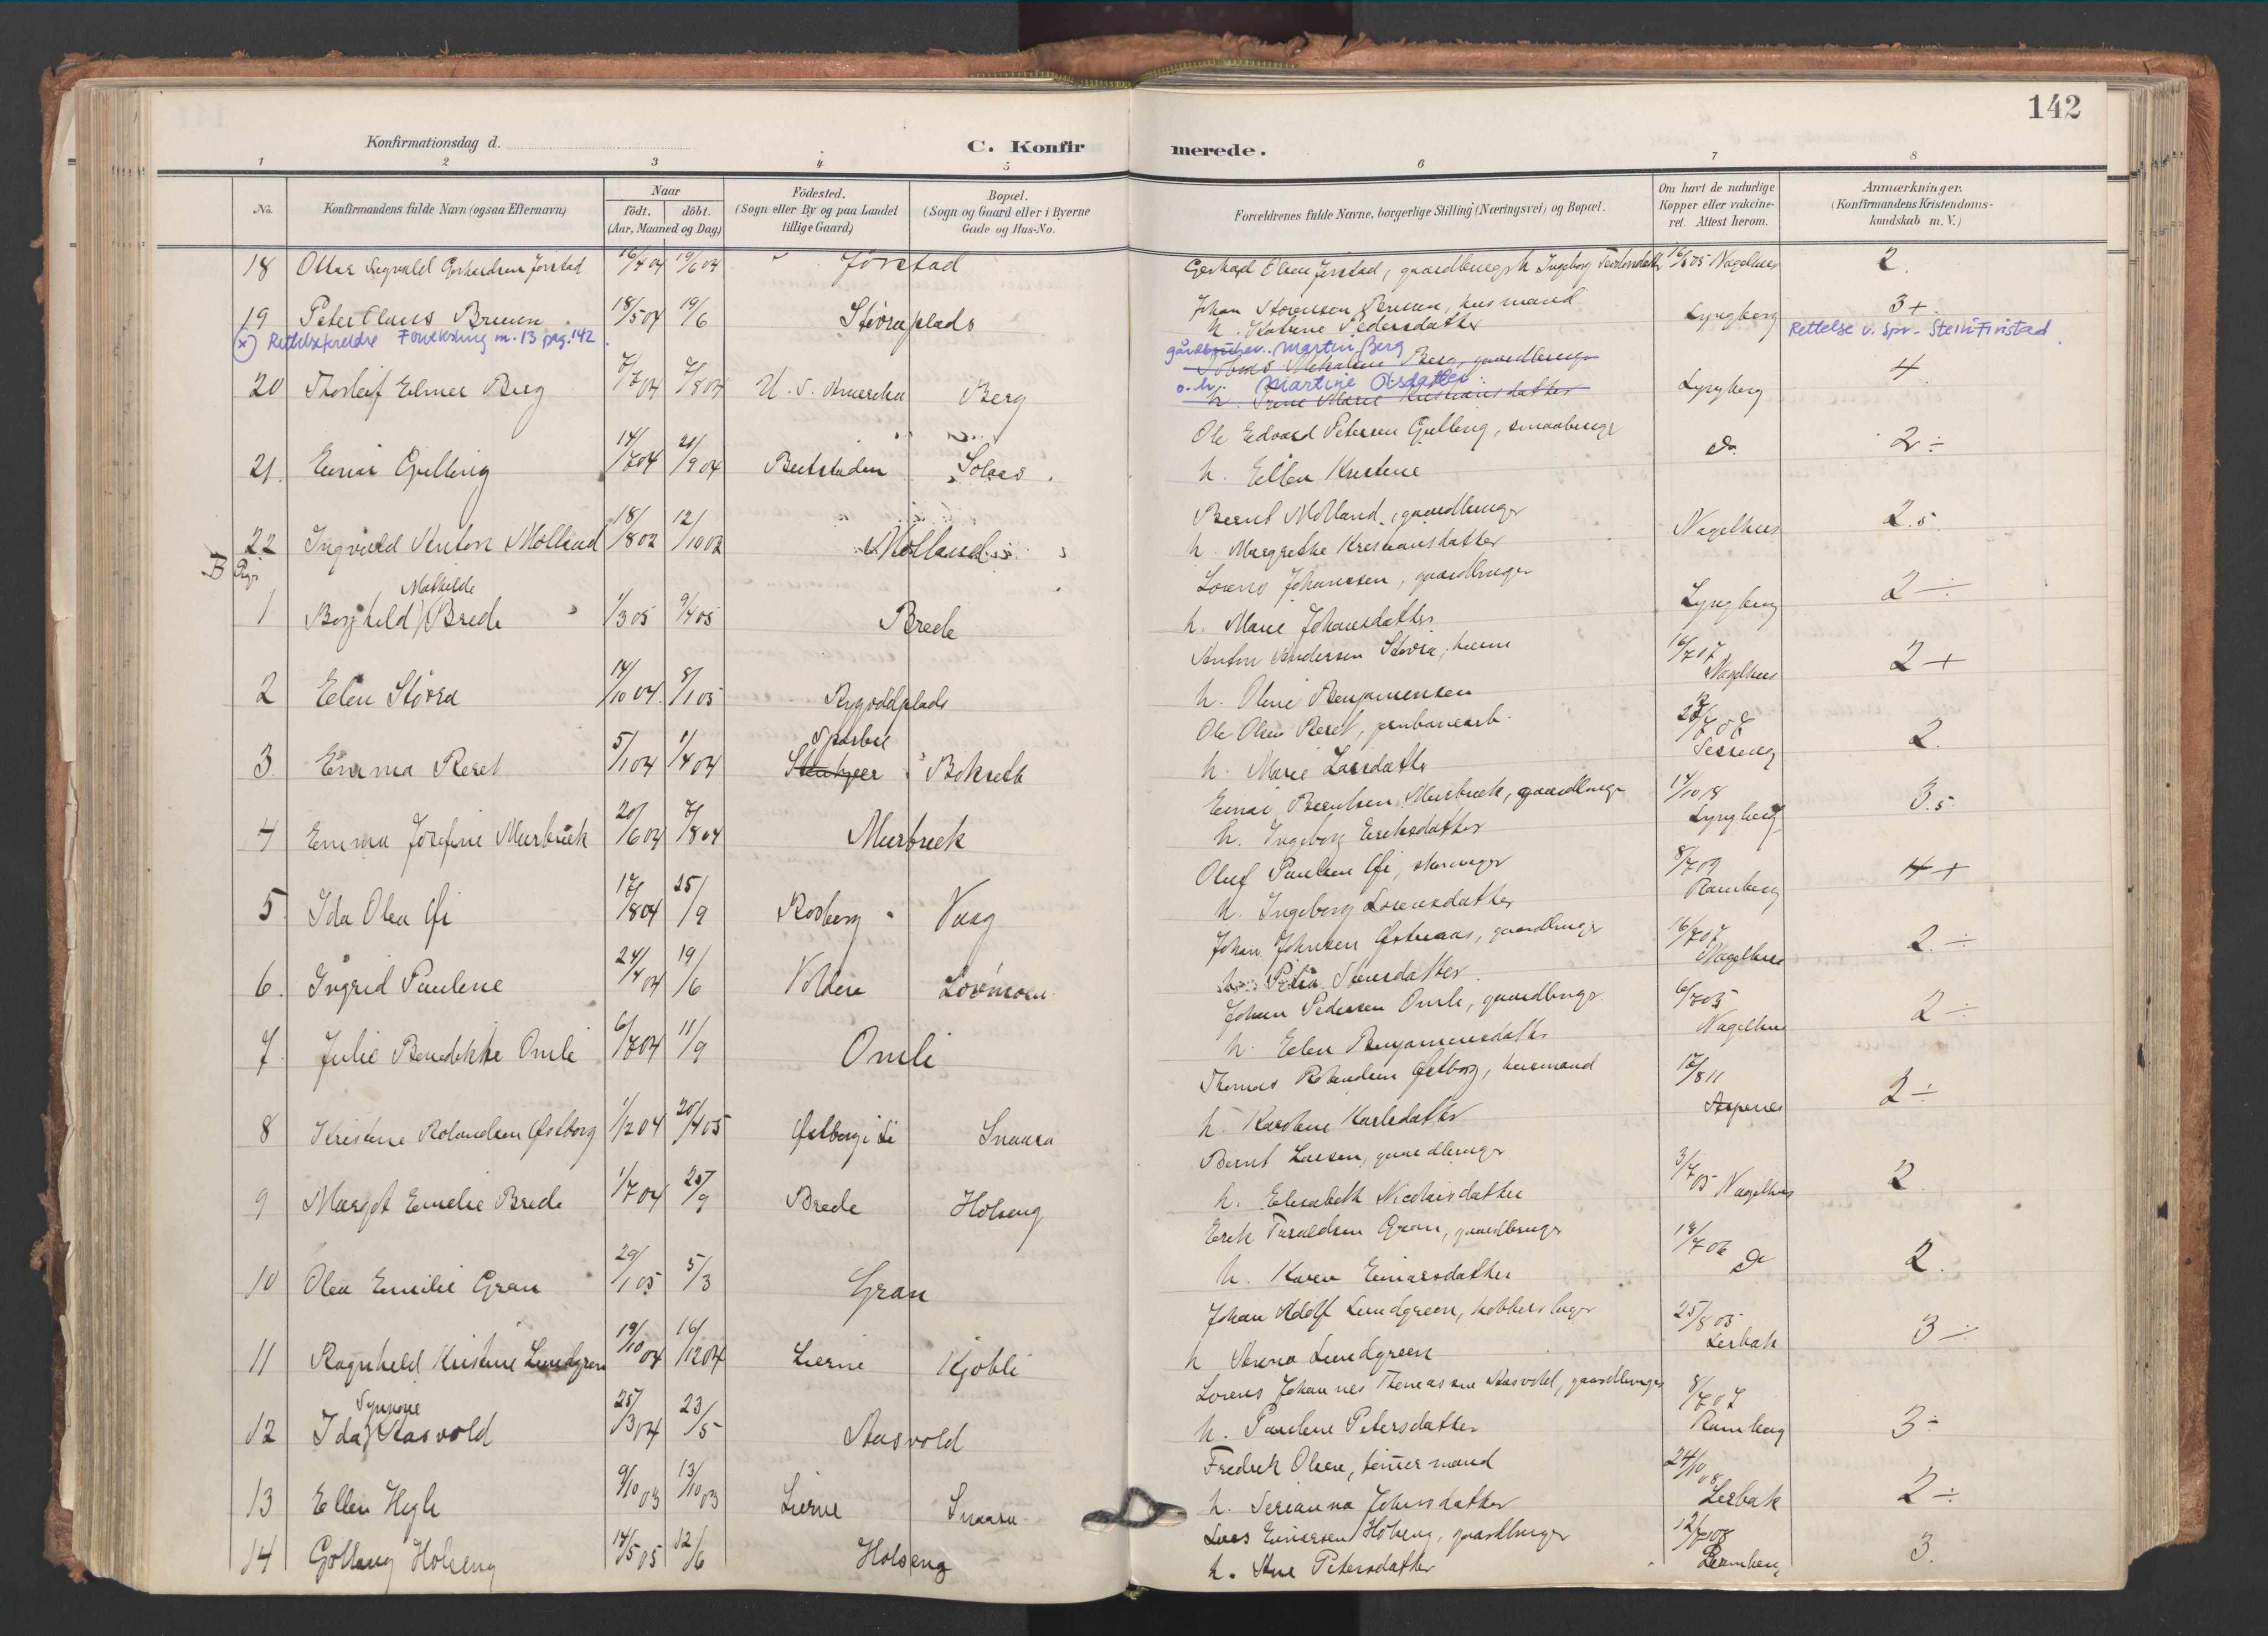 142
Konfirmationsdag d.
C. Konfir
merede.
1 2 3 4 5 6 7 8
No.
Konfirmandens fulde Navn (ogsaa Efternavn)
Naar
født. døbt.
(Aar, Maaned og Dag)
Fødested.
(Sogn eller By og paa Landet
tillige Gaard)
Bopæl.
(Sogn og Gaard eller i Byerne
Gade og Hus-No.
Forældrenes fulde Navne, borgerlige Stilling (Næringsvei) og Bopæl.
Om havt de naturlige
Kopper eller vakcine-
ret. Attest herom.
Anmærkninger.
(Konfirmandens Kristendoms-
kundskab m. V.)
18 Ottar Sigvald Gerhardsen Jørstad 16/4 04 19/6 04 Jørstad Gerhard Olsen Jørstad, gaardbruger h. Ingeborg Nagelhus 2.
19 Peter Olaus Bruem 18/5 04 19/6 Støvraplads Johan husmand
h. Katrine Pedersdatter Lyngberg 3+
(x) Foreldre m. 13 pag. 142 Rettelse v. Spr. Stein Finstad
gårdbruker Martin Berg
Berg, gaardbruger
20 Thorleif Elmer Berg 7/7 04 7/8 04 U. S. Amerika Berg o. h. Martine Olsdatter Lyngberg 4
h. Trine Marie Kristiansdatter
Ole Edvard Petersen Gulling, smaabruger
21. Einar Gulling 14/7 04 21/9 04 Beitstaden Solaas h. Ellen Kristine do 2 ÷
Bernt Mølland, gaardbruger
22 Ingvald Anton Mølland 18/8 02 12/10 02 Mølland h. Margrethe Kristiansdatter Nagelhus 2.5
B Pigr
Mathilde Lorens Johanssen, gaardbruger
1 Borghild Brede 1/3 05 9/4 05 Brede h. Marie Johansdatter Lyngberg 2 ÷
Anton Andersen Støvra, husm
2 Elen Støvra 14/10 04 8/1 05 Bygodtplads h. Oline Benjaminsen 16/7 07 Nagelhus 2+
Sparbu Ole Olsen Reset, jernbanearb.
3. Emma Reset 5/1 04 1/4 04 Stenkjer Bokreth h. Marie Larsdatter 2.
Einar Berntsen Murbræk, gaardbruger
4 Emma Josefine Murbræk 20/6 04 7/8 04 Murbræk h. Ingeborg Eriksdatter 14/10 18 Lyngberg 3.5
Oluf Paulsen Øi,
5. Ida Olea Øi 17/8 04 25/9 Rosberg Vaag h. Ingeborg Lorensdatter 8/7 09 Ramberg 4+
Johan Johnsen Østvaas, gaardbruger
6. Ingrid Pauline 24/4 04 19/6 Løvmoen Petra 16/7 07 Nagelhus 2 ÷
Johan Pedersen Omli, gaardbruger
7. Julie Benedikte Omli 6/7 04 11/9 Omli h. Elen Benjaminsdatter 6/7 05 Nagelhus 2 ÷
Thomas Rolandsen Østborg, husmand
8 Kristine Rolandsen Østborg 1/2 04 20/4 05 Østborg i Li Snaasa h. Karoline Karlsdatter 17/8 11 Aspenes 2 ÷
Bernt Larsen, gaardbruger
9 Margot Emelie Brede 1/7 04 25/9 Brede Holseng h. Elisabeth Nicolaisdatter 3/7 05 Nagelhus 2
Erik Taraldsen Gran, gaardbruger
10 Olea Emilie Gran 29/1 05 5/3 Gran h. Karen Einarsdatter 18/7 06 do 2.
Johan Adolf Lundgreen, kobberslager
11 Ragnhild Kristine Lundgren 19/10 04 16/12 04 Lierne Kjobli h Anna Lundgreen 25/8 05 Lerbak 3 ÷
Synnøve Lorens Johannes Thomassen Aasvold, gaardbruger
12 Ida Aasvold 25/3 04 23/5 Aasvold h. Pauline Petersdatter 8/7 07 Ramberg 3 ÷
Fredrik Olsen, tømmermand
13 Ellen Hegle 9/10 03 13/10 03 Lierne Snaasa h. Serianna Johnsdatter 24/10 08 Lerbak 2 ÷
Lars Einersen Holseng, gaardbruger
14 Gølleug Holseng 14/5 05 12/6 Holseng h. Ane Petersdatter Ramberg 3.